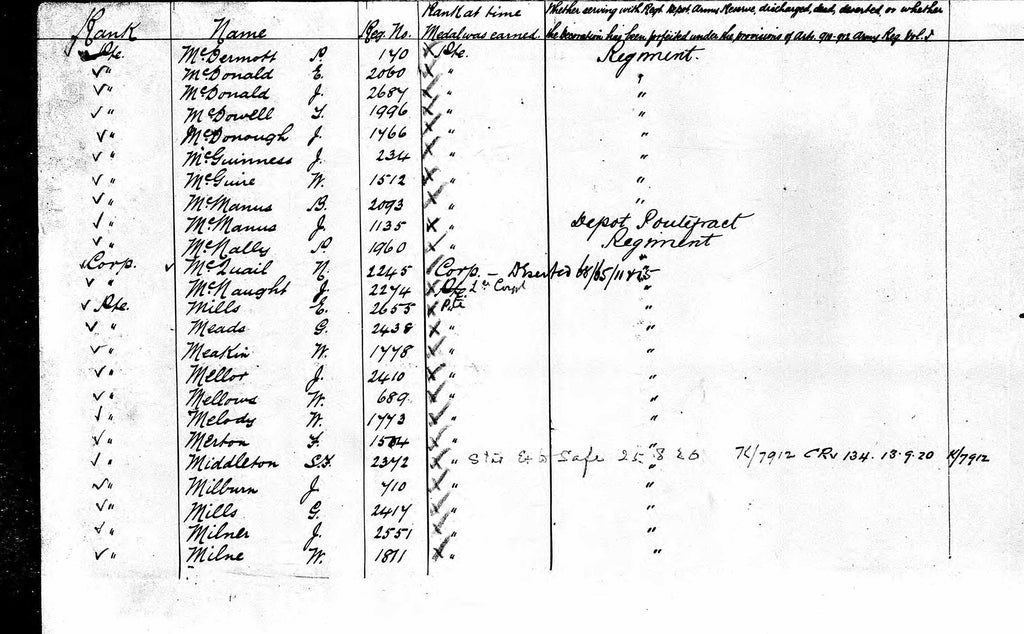 Rank Name Reg. No. Rank at time Medal was earned. Whether serving with Regt, Depot, Army Reserve, discharged, dead, deserted, or whether
the Decoration has been forfeited under the provisions of Arts. 910-912 Army Reg. Vol. I
✓ Pte. McDermott P. 140 Pte. Regiment.
✓ " McDonald E. 2060 " "
✓ " McDonald J. 2687 " "
✓ " McDowell T. 1996 " "
✓ " McDonough J. 1766 " "
✓ " McGuinness J. 234 " "
✓ " McGuire W. 1512 " "
✓ " McManus B. 2093 " "
✓ " McManus J. 1135 " Depot Pontefract
✓ " McNally P. 1960 " Regiment
✓ Corp. ✓ McQuail N. 2245 Corp. - Deserted "
✓ " McNaught J. 2274 2nd Corpl "
✓ Pte. Mills E. 2655 Pte "
✓ " Meads G. 2438 " "
✓ " Meakin W. 1778 " "
✓ " Mellor J. 2410 " "
✓ " Mellows W. 689 " "
✓ " Melody W. 1773 " "
✓ " Merton F. 1504 " "
✓ " Middleton 2372 " Safe 25 8 20 K/7912 CRV 134. 13.9.20 K/7912
✓ " Milburn J. 710 " "
✓ " Mills G. 2417 " "
✓ " Milner J. 2551 " "
✓ " Milne W. 1811 " "